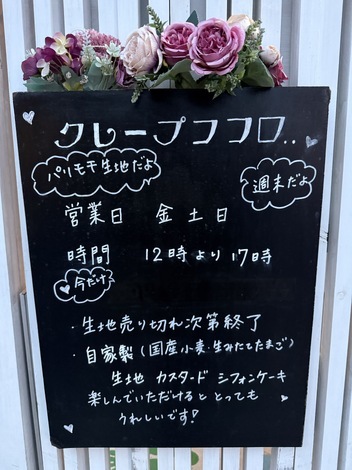 クレープココロ..
パリモチ生地だよ
週末だよ
営業日 金土日
時間 12時より17時
今だけ
・生地売り切れ次第終了
・自家製(国産小麦・生みたてたまご)
生地 カスタード シフォンケーキ
楽しんでいただけると とっても
うれしいです!